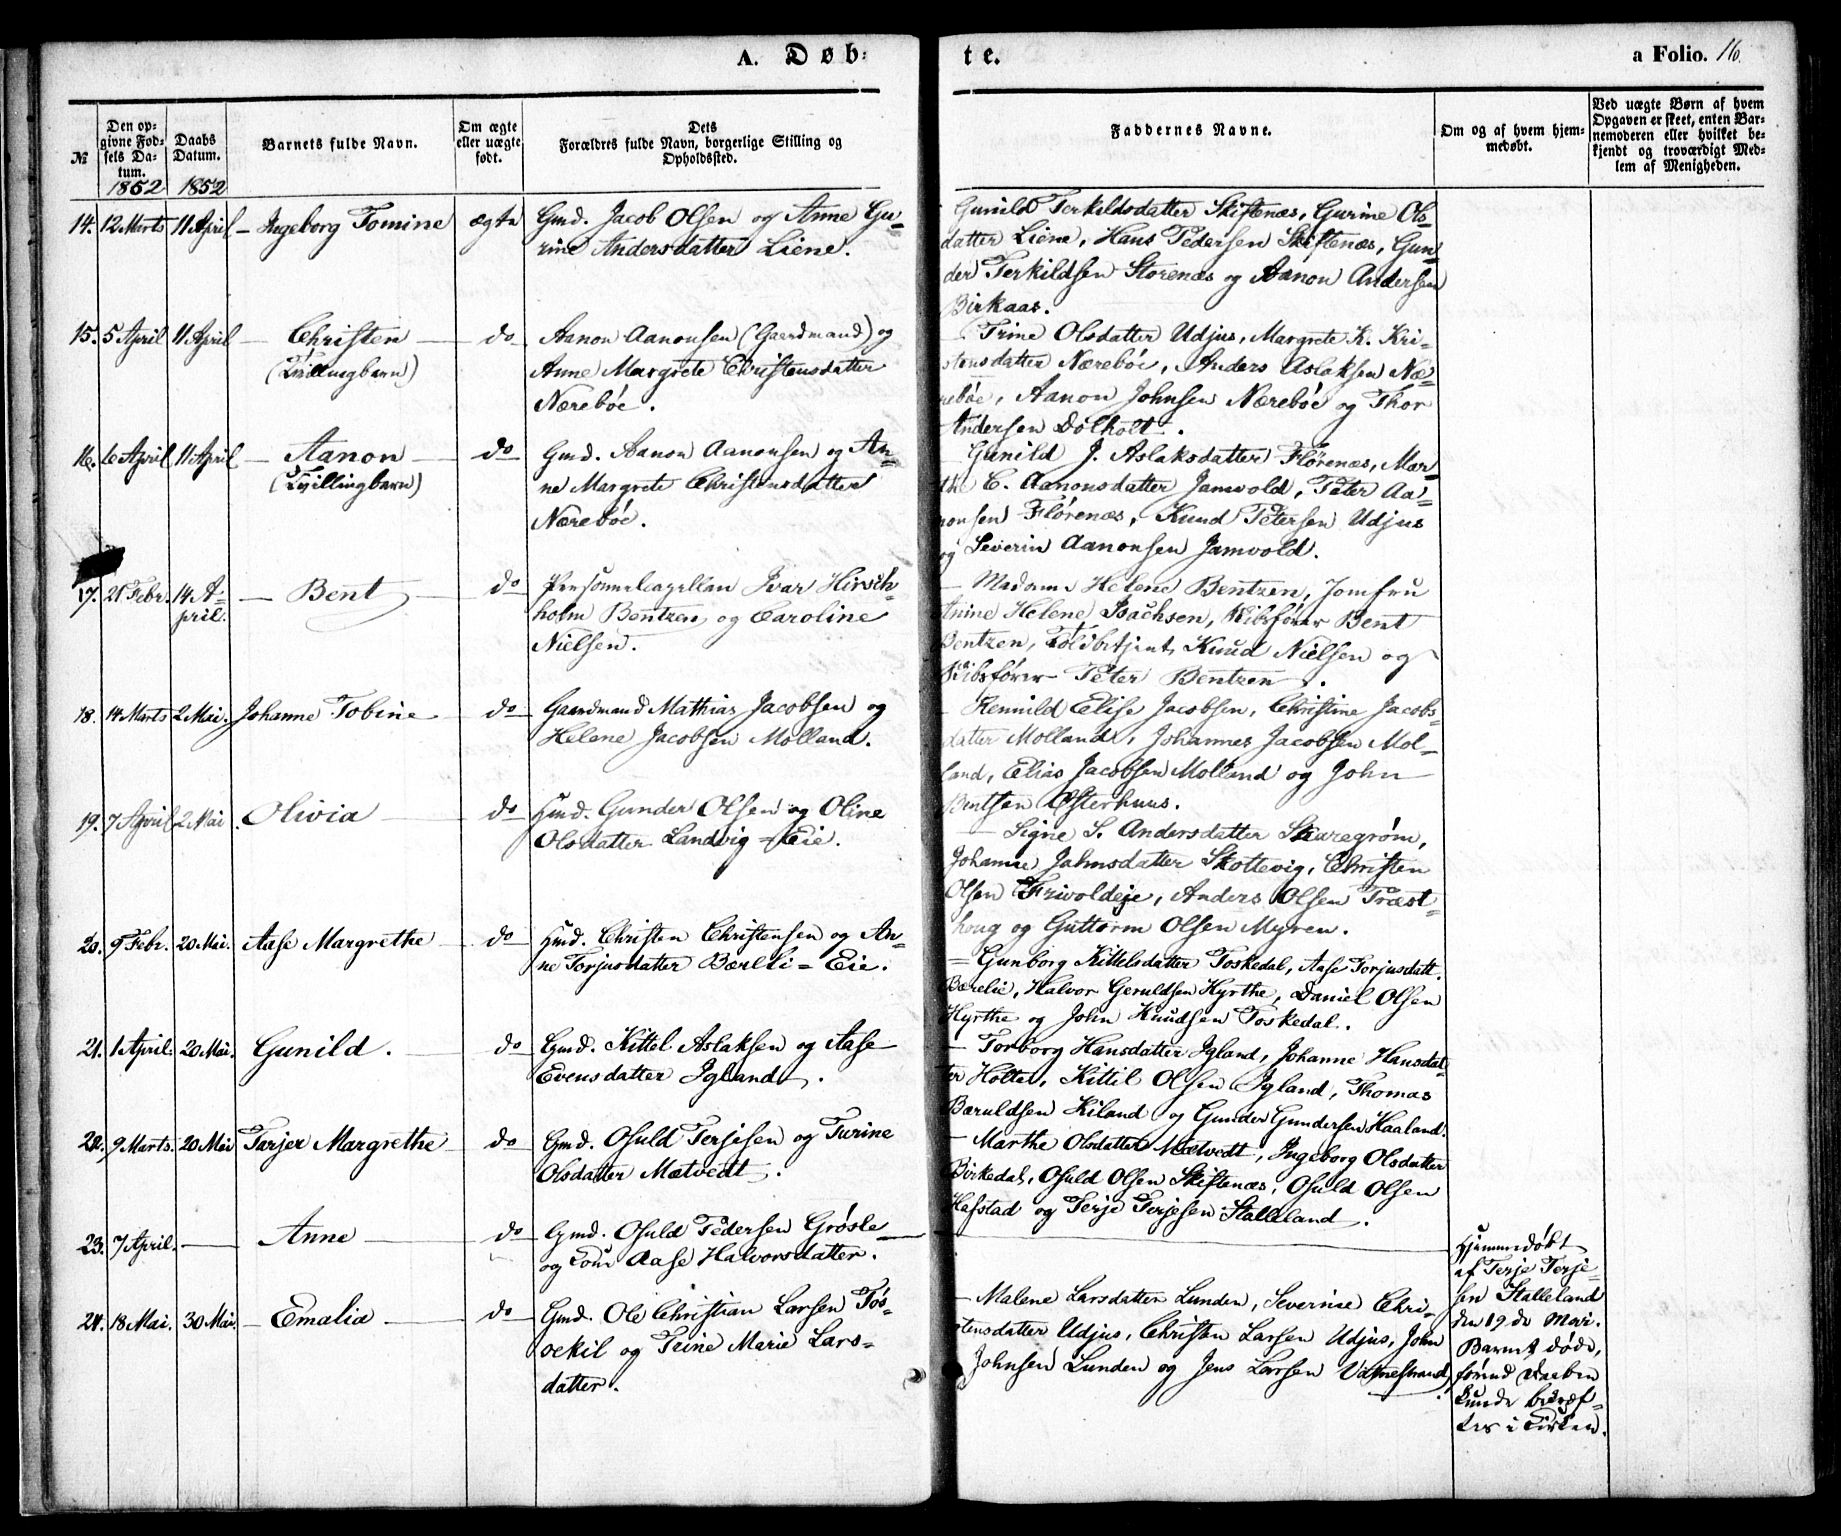 A. Døb:
te.
a Folio. 16.
№
Den op-
givne Fød-
sels Da-
tum.
1852
Daabs
Datum.
1852
Barnets fulde Navn.
Om ægte
eller uægte
født.
Dets
Forældres fulde Navn, borgerlige Stilling og
Opholdssted.
Faddernes Navne.
Om og af hvem hjem-
medøbt.
Ved uægte Børn af hvem
Opgaven er skeet, enten Bar-
nemoderen eller hvilket be-
kjendt og troværdigt Med-
lem af Menigheden.
14. 12 Marts 11 April – Ingeborg Tomine ægte Gmd. Jacob Olsen og Anne Gu-
rine Andersdatter Liene.
Gunild Terkildsdatter Skiftenæs, Gurine Ols-
datter Liene, Hans Pedersen Skiftenæs, Gun-
der Terkildsen Storenæs og Aanon Andersen
Birkaas.
15. 5 April 11 April – Christen – do Aanon Aanonsen (Gaardmand) og
(Tvillingbarn) Anne Margrete Christensdatter
Nærebøe.
– Trine Olsdatter Udjus, Margrete K. Kri-
stensdatter Nærebøe, Anders Aslaksen Næ-
rebøe, Aanon Johnsen Nærebøe og Thor
Andersen Dolholt.
16. 6 April 11 April – Aanon – do Gmd. Aanon Aanonsen og An-
(Tvillingbarn) ne Margrete Christensdatter
Nærebøe.
Gunild J. Aslaksdatter Flørenæs, Mar-
the C. Aanonsdatter Jamvold, Peter Aa-
nonsen Flørenæs, Knud Petersen Udjus
og Severin Aanonsen Jamvold.
17. 21 Febr. 14 A-
pril. – Bent – do Personnelcapellan Ivar Hirsch-
holm Bentzen og Caroline
Nielsen.
– Madame Helene Bentzen, Jomfru
Anine Helene Isachsen, Skibsfører Bent
Bentzen, Toldbetjent Knud Nielsen og
Skibsfører Peter Bentzen.
18. 14 Marts 2 Mai. Johanne Tobine – do Gaardmand Mathias Jacobsen og
Helene Jacobsen Molland.
– Elise Jacobsen, Christine Jacobs-
datter Molland, Johannes Jacobsen Mol-
land, Elias Jacobsen Molland og John
Bentsen Østerhuus.
19. 7 April 2 Mai. Olivia – do Hmd. Gunder Olsen og Oline
Olsdatter Landvig=Eie.
– Signe S. Andersdatter Skaregrøm,
Johanne Jahnsdatter Skottevig, Christen
Olsen Frivoldeje, Anders Olsen Træst-
houg og Guttorm Olsen Myren.
20. 9 Febr. 20 Mai. Aase Margrethe – do Hmd. Christen Christensen og An-
ne Torjusdatter Bærlie=Eie.
= Gunborg Kittelsdatter Toskedal, Aase Torjusdatt.
Bærelie, Halvor Geruldsen Hyrthe, Daniel Olsen
Hyrthe og John Knudsen Toskedal.
21. 1 April. 20 Mai. Gunild. – do Gmd. Kittel Aslaksen og Aase
Evensdatter Igland.
– Torborg Hansdatter Igland, Johanne Hansdat-
ter Holte, Kittil Olsen Igland, Thomas
Bæruldsen Kiland og Gunder Gundersen Haaland.
22. 9 Marts. 20 Mai Tarjer Margrethe – do Gmd. Osuld Terjesen og Turine
Olsdatter Mætvedt.
– Marthe Olsdatter Mætvedt, Ingeborg Olsdatter
Birkedal, Osuld Olsen Skiftenæs, Osuld Olsen
Hafstad og Terje Terjesen Stalleland.
23. 7 April. – Anne – do Gmd. Osuld Pedersen Grøsle
og Aase Halvorsdatter.
Hjemmedøbt
af Terje Terje-
sen Stalleland
den 19. de Mai.
Barnet døde,
førend Daaben
kunde bekræf-
tes i Kirken.
24. 18 Mai. 30 Mai. – Emalia – do Gmd. Ole Christian Larsen Tøs-
sekil og Trine Marie Lars-
datter.
– Malene Larsdatter Lunden, Severine Chri-
stensdatter Udjus, Christen Larsen Udjus, John
Johnsen Lunden og Jens Larsen Vatnestrand.